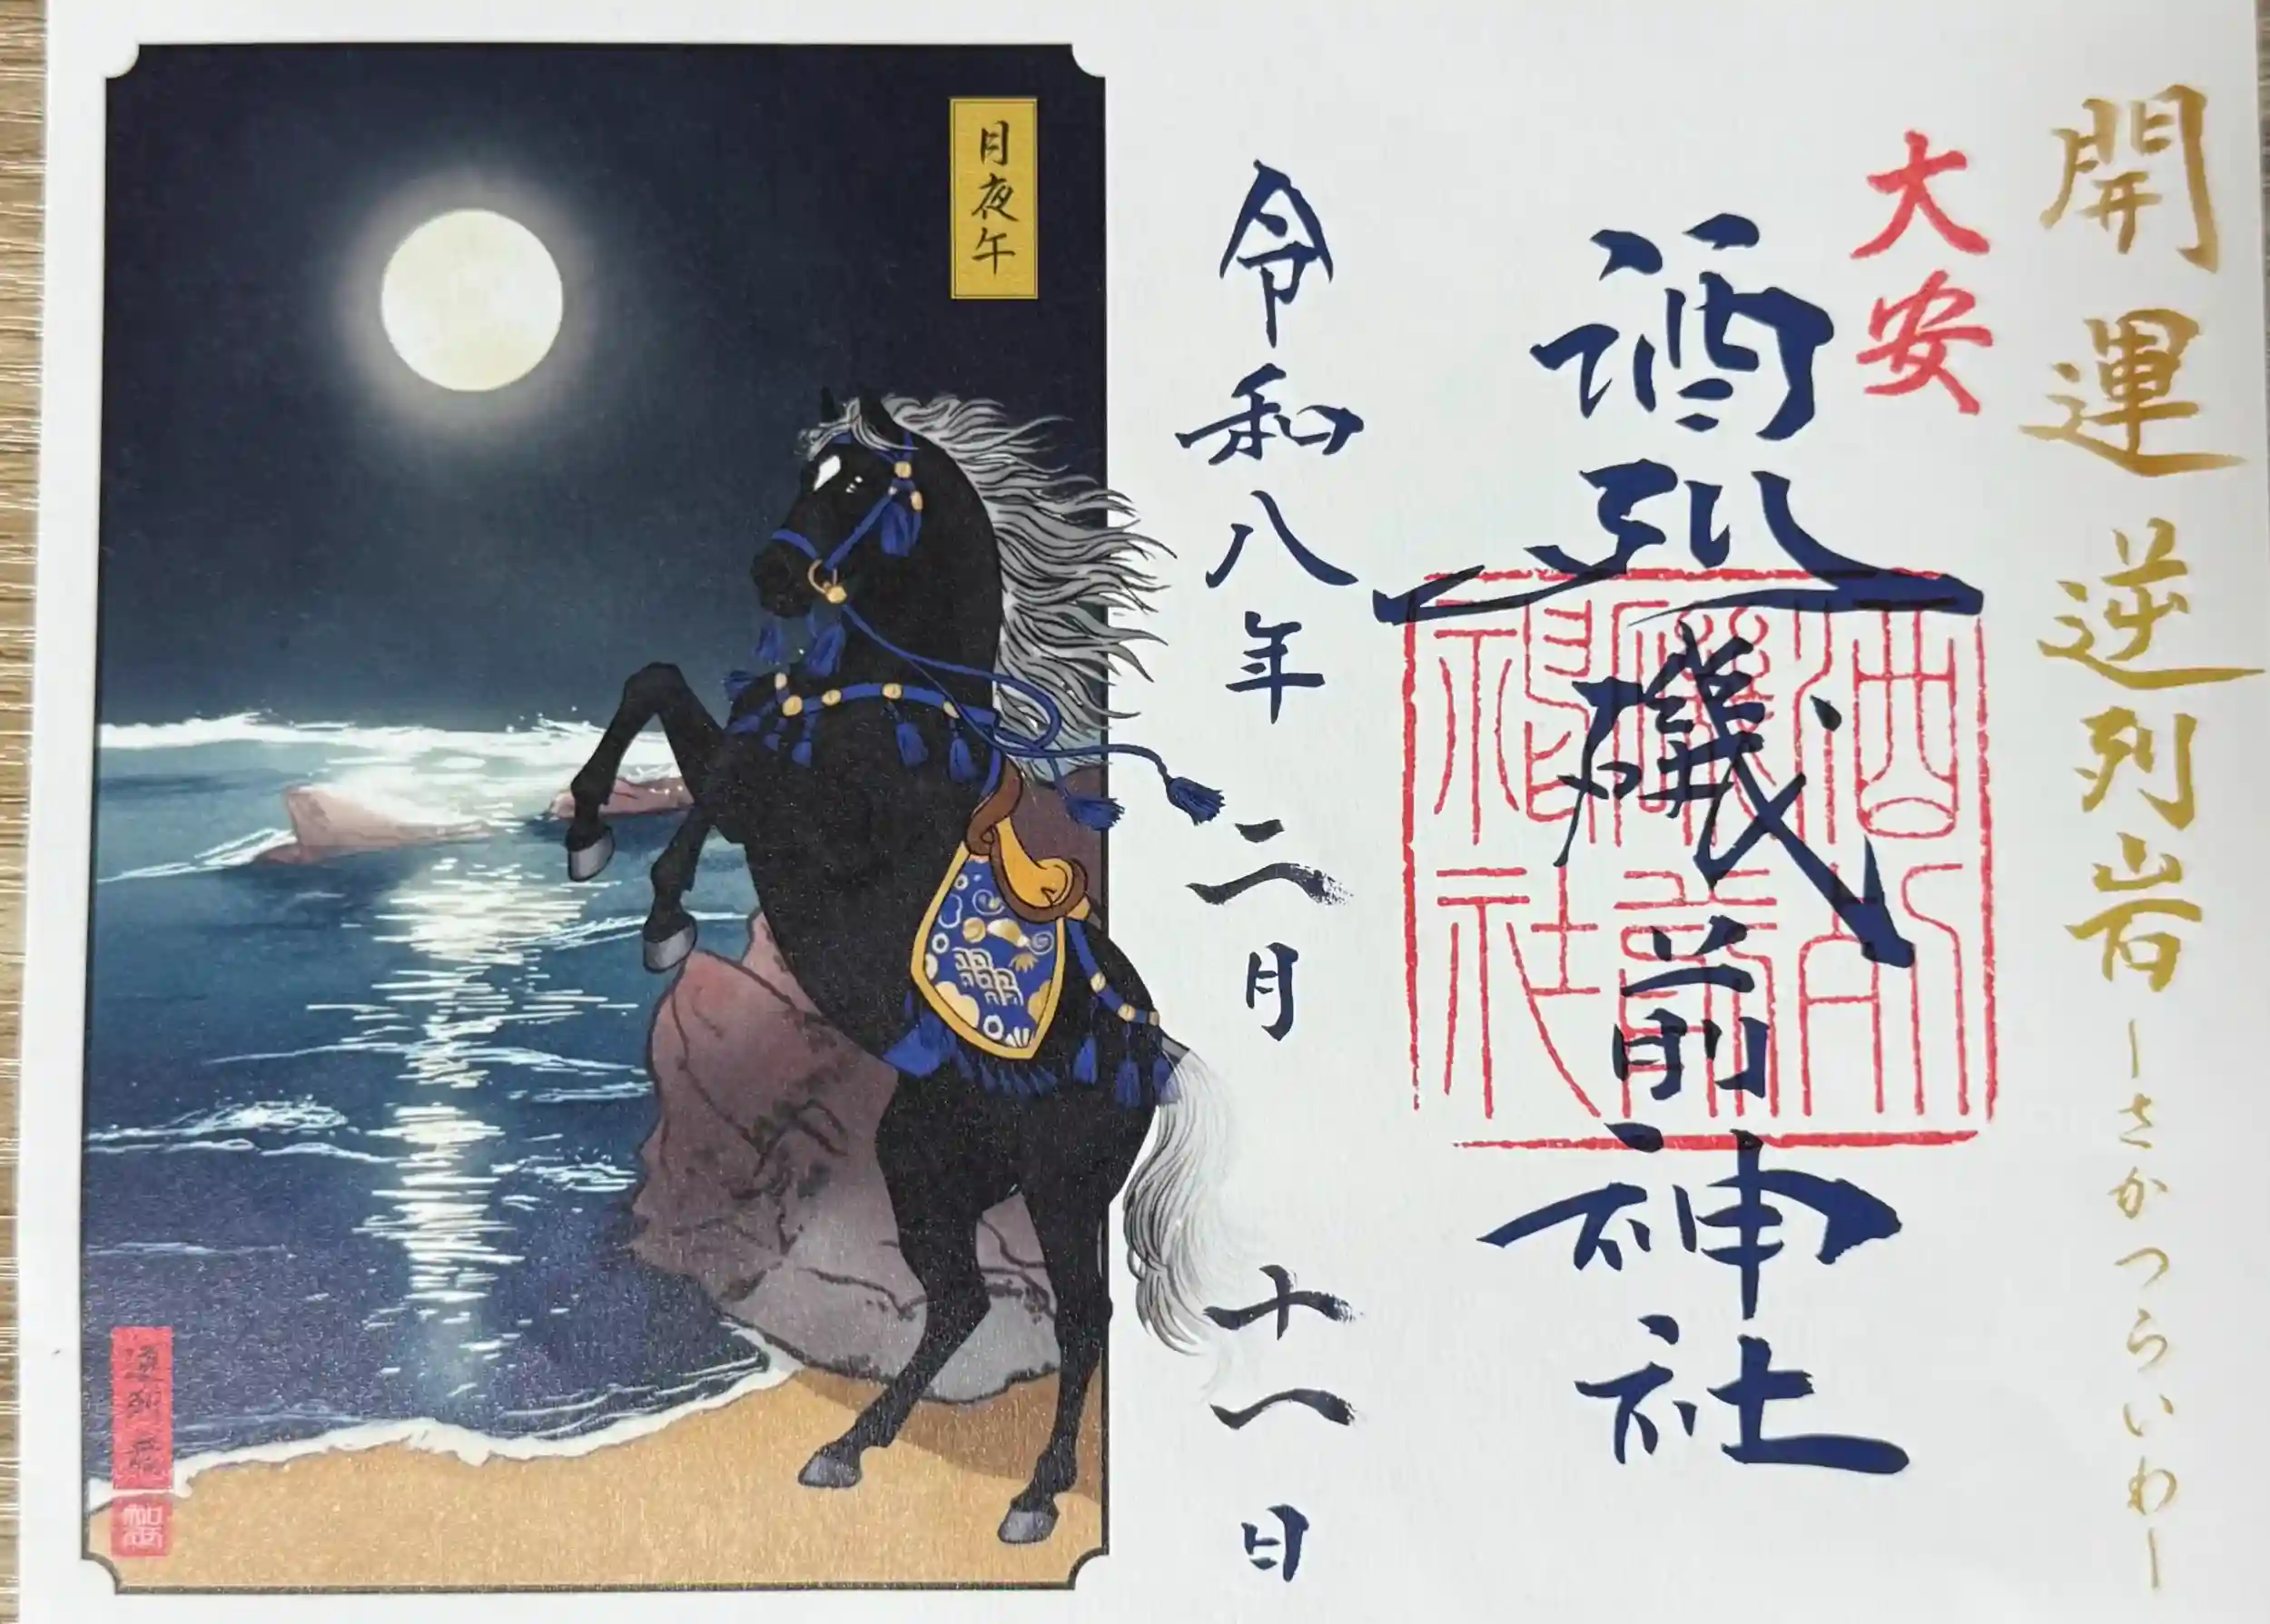 開運 逆列岩 ーさかつらいわー
大安
酒列磯前神社
酒列
磯前
神社
令和八年 二月 十一日
月夜午